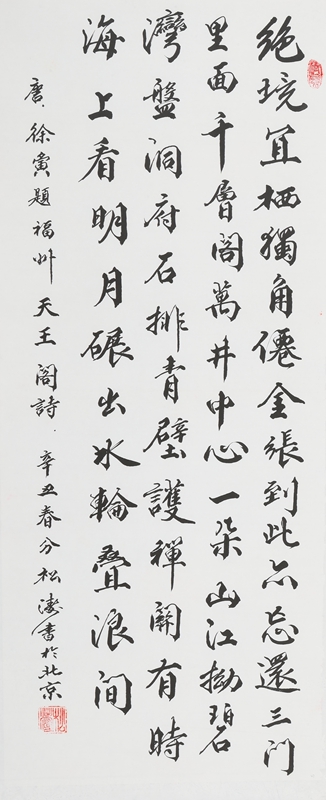 絕境宜栖獨角僊金張到此亦忘還三門
里面千層閣萬井中心一朵山江拗碧
灣盤洞府石排青壁護禪關有時
海上看明月碾出氷輪疊浪間
唐 徐寅題福州天王閣詩 辛丑春分松濤書於北京